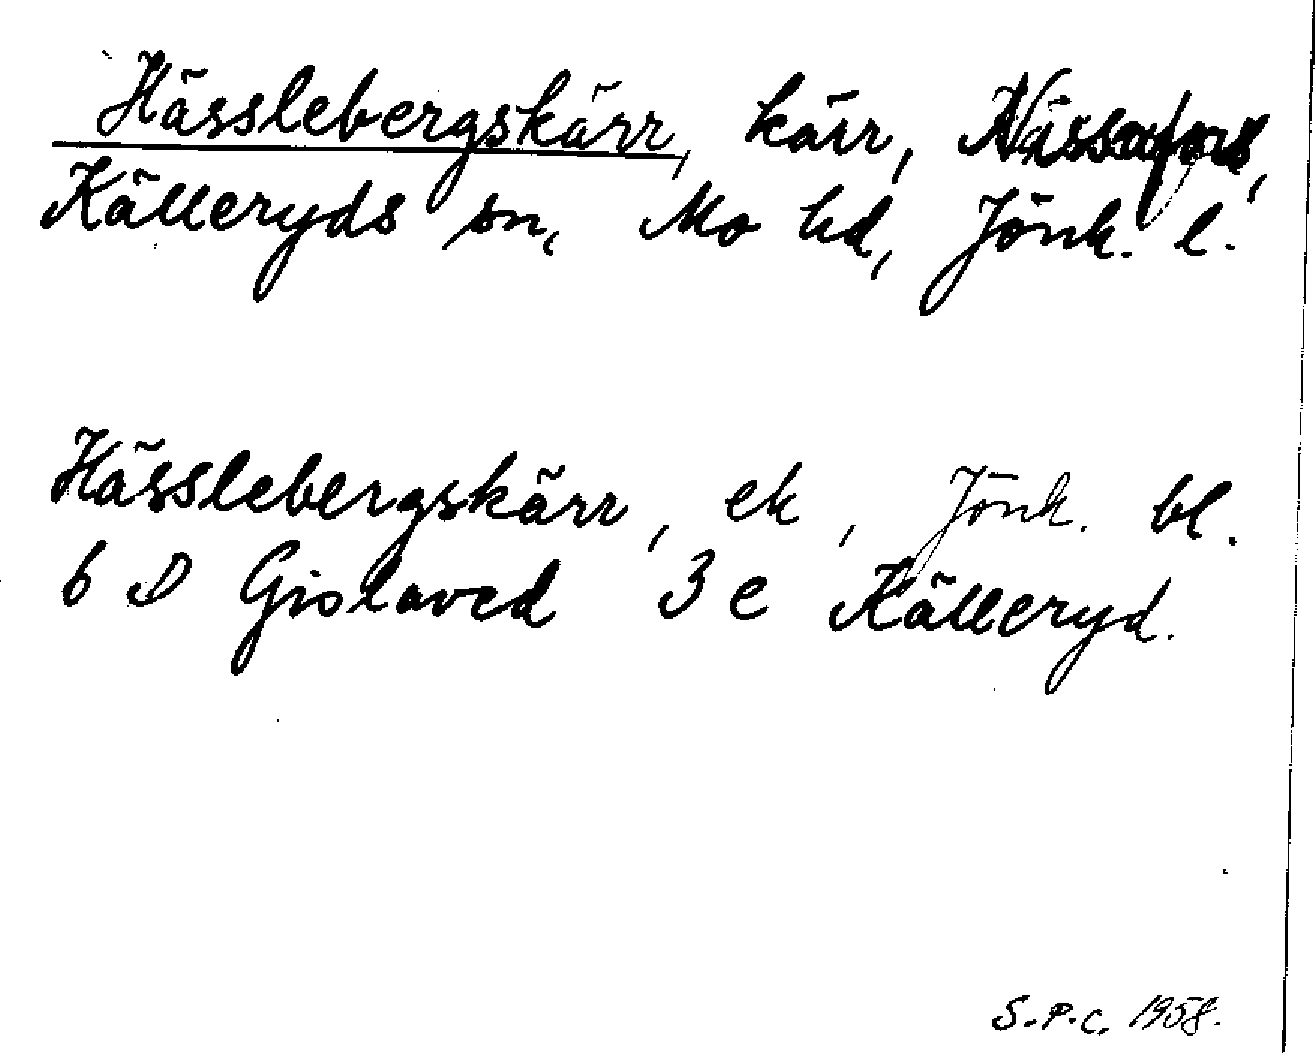 Hässlebergskärr, kärr, Nissafors,
Källeryds sn, Mo hd, Jönk. l.
Hässlebergskärr, ek, Jönk. bl.
6 D Gislaved 3 e Källeryd.
S.P.C. 1958.